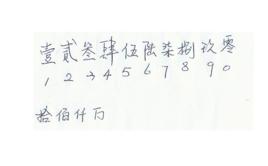 壹贰叁肆伍陆柒捌玖零
1 2 3 4 5 6 7 8 9 0
拾佰仟万